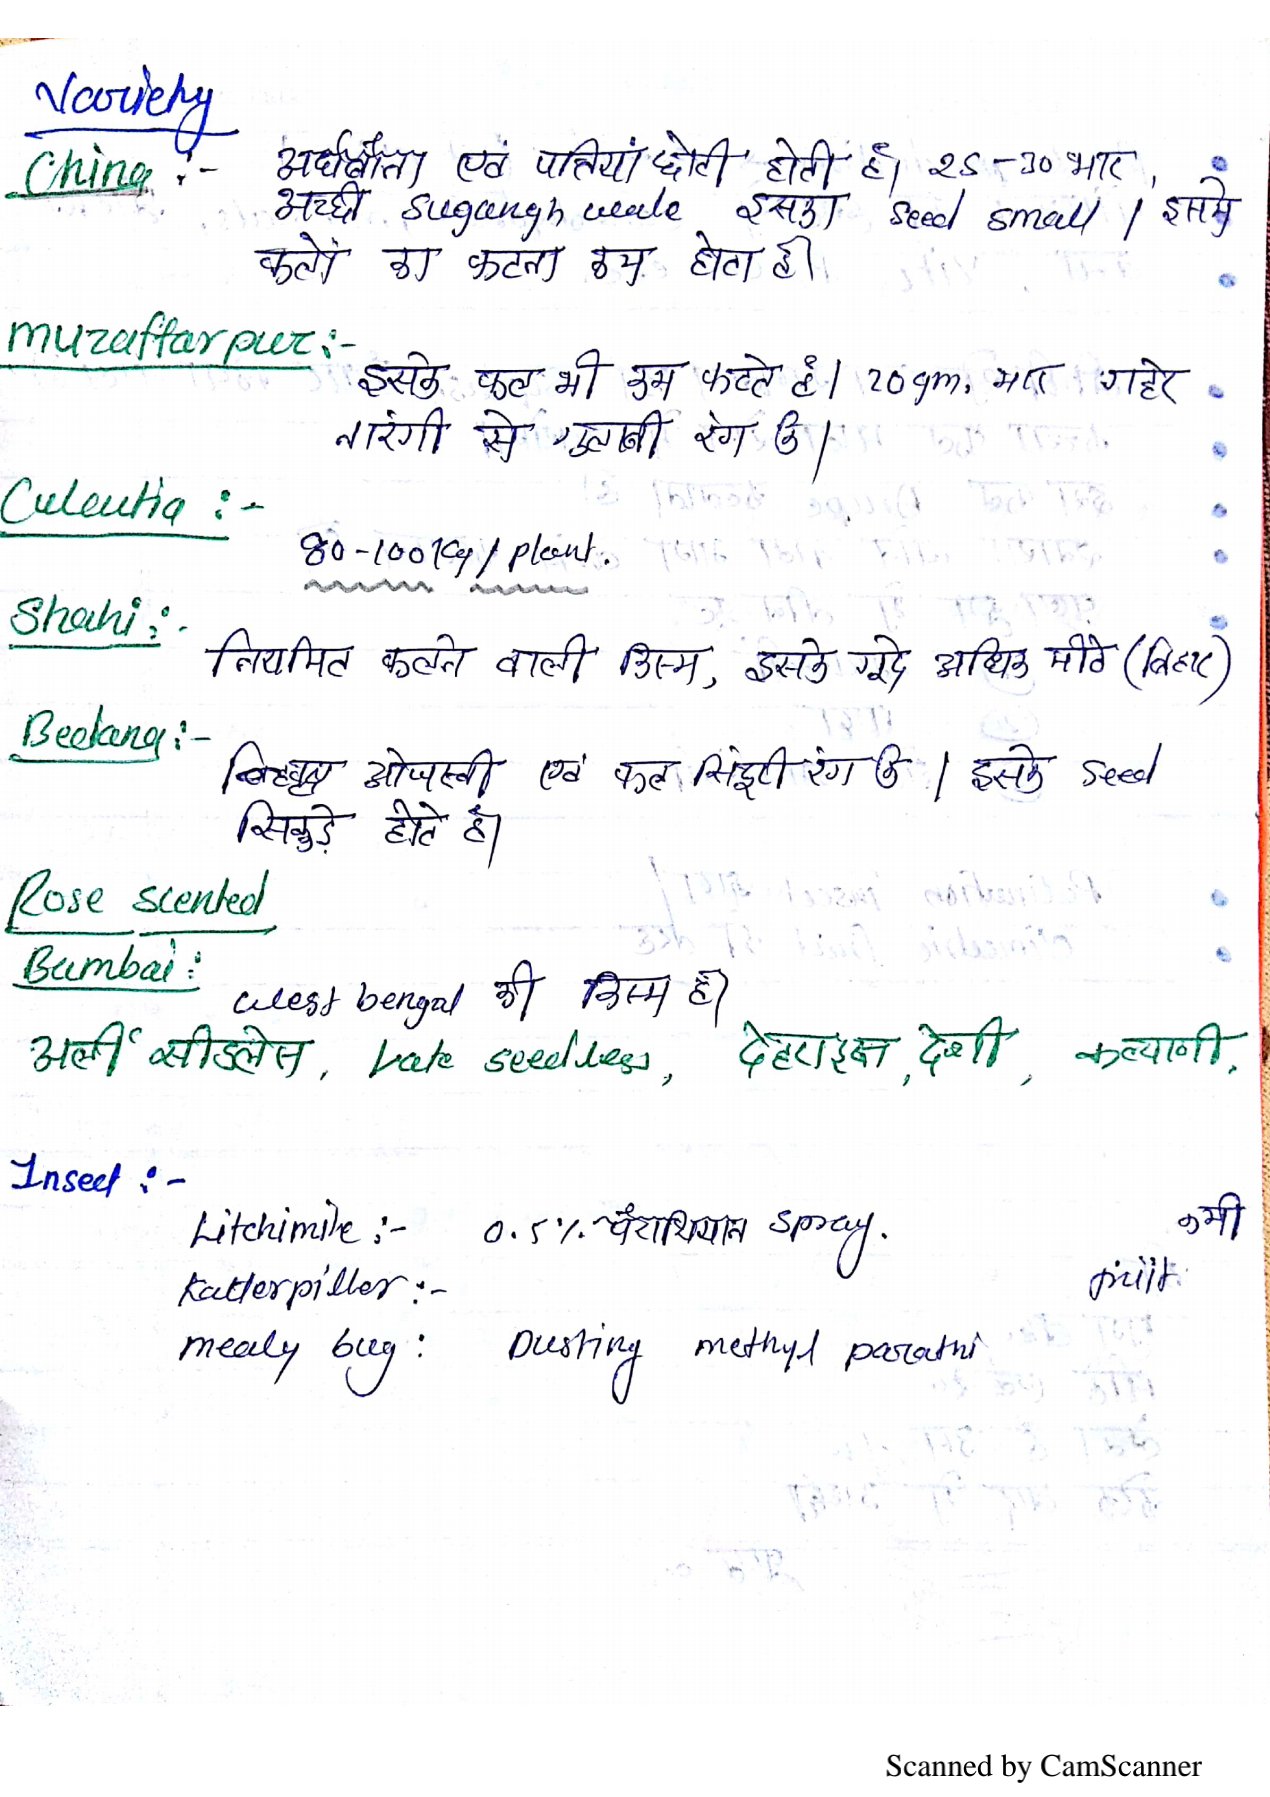 Variety
China :- अर्धबौना एवं पत्तियां छोटी होती है। 25-30 भार,
अच्छी sugangh wale इसका seed small । इसमे
फलों का फटना कम होता है।
Muzaffarpur :-
इसके फल भी कम फटते है। 20gm. भार गहरे
नारंगी से गुलाबी रंग के।
Culcutia :-
80-100 Kg / plant.
Shahi :-
नियमित फलने वाली किस्म, इसके गूदे अधिक मीठे (बिहार)
Beedang :-
ओजस्वी एवं फल सिंदूरी रंग के । इसके seed
सिकुड़े होते है।
Rose scented
Bumbai :
West bengal की किस्म है।
अर्ली सीडलेस, Late seedless, देहरादून, देशी, कल्याणी,
Insect :-
Litchimite :- 0.5% पैराथियान spray. कमी
Katterpiller :- fruit
mealy bug : Dusting methyl parathi
Scanned by CamScanner